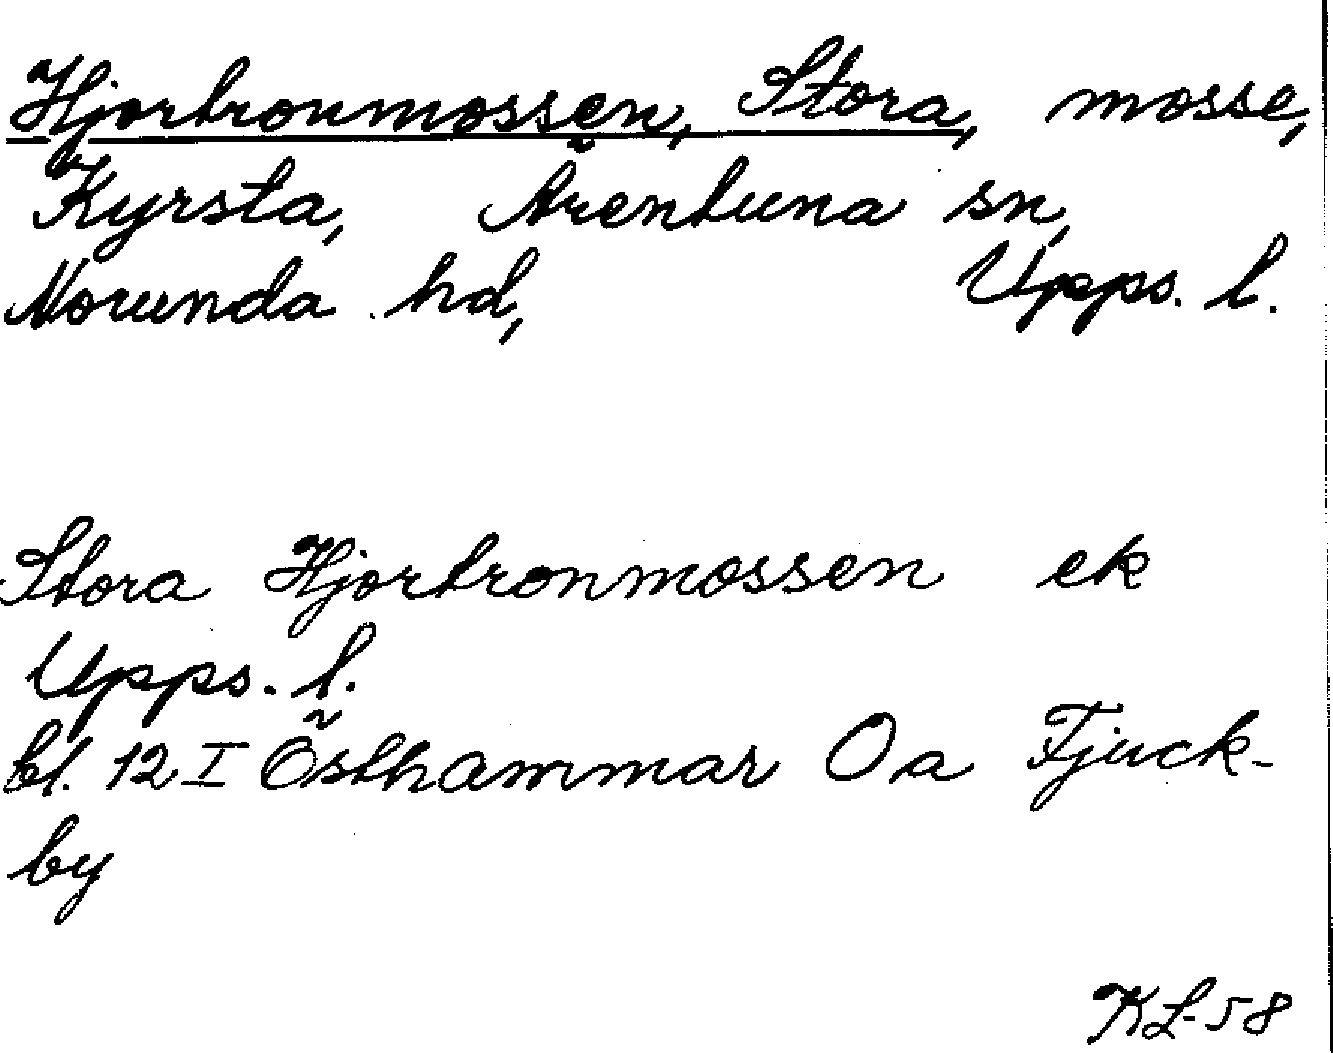 Hjortronmossen, Stora, mosse,
Kyrsta, Ärentuna sn,
Norunda hd, Upps. l.
Stora Hjortronmossen ek
Upps. l.
bl. 12 I Östhammar Oa Fjuck-
by
KL-58